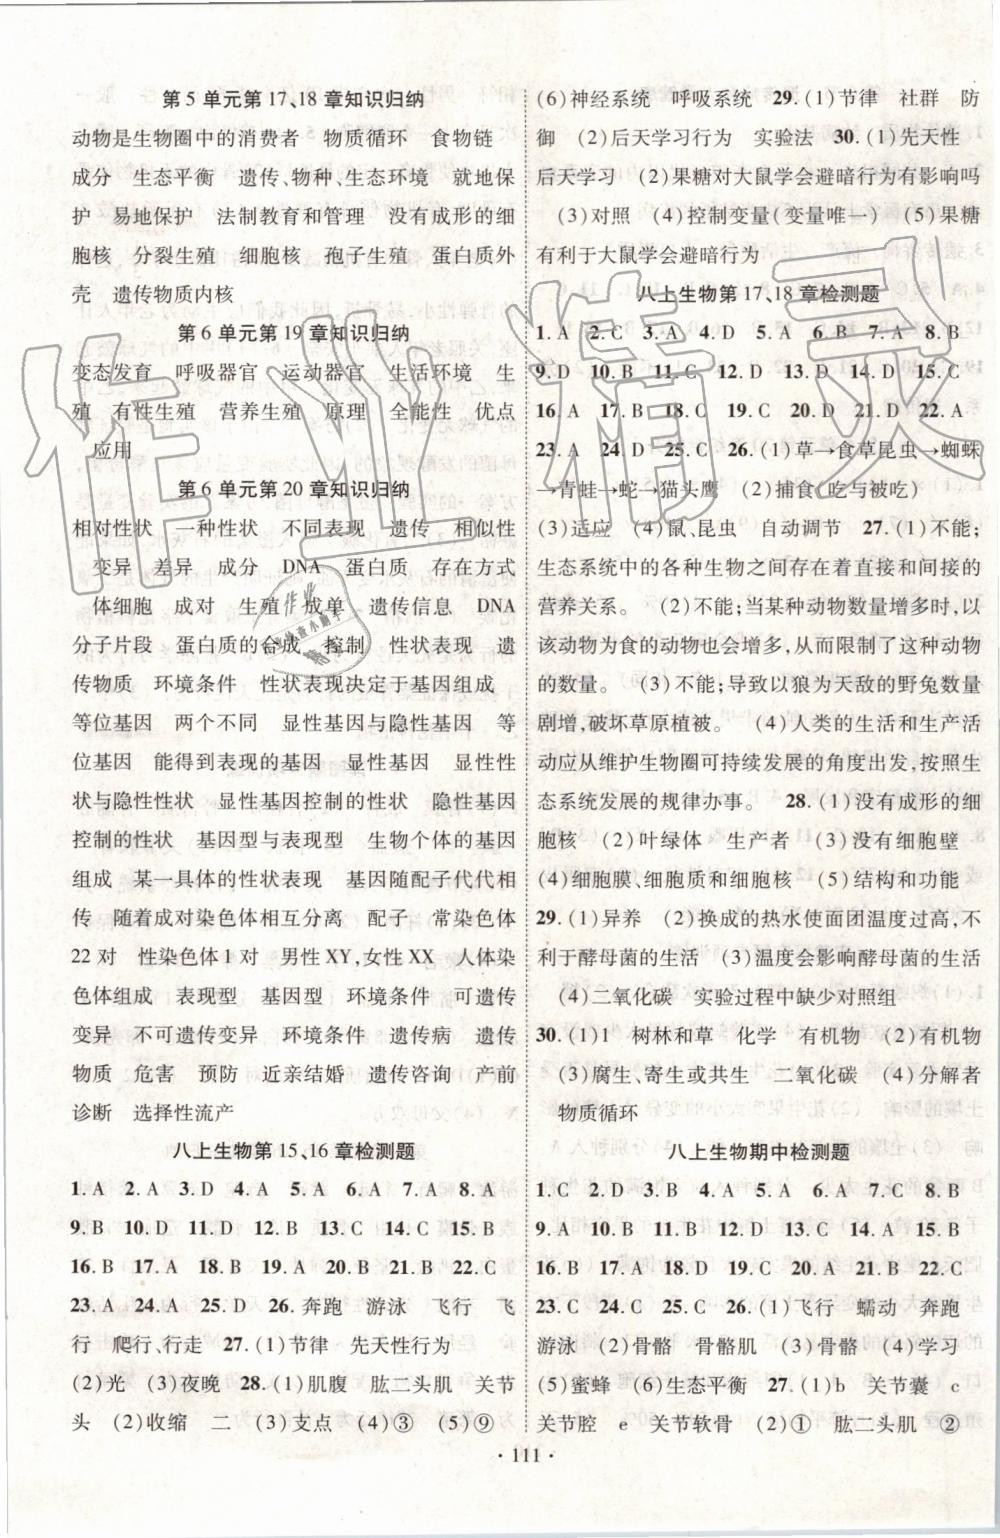 第5单元第17、18章知识归纳
动物是生物圈中的消费者　物质循环　食物链
成分　生态平衡　遗传、物种、生态环境　就地保
护　易地保护　法制教育和管理　没有成形的细
胞核　分裂生殖　细胞核　孢子生殖　蛋白质外
壳　遗传物质内核
第6单元第19章知识归纳
变态发育　呼吸器官　运动器官　生活环境　生
殖　有性生殖　营养生殖　原理　全能性　优点
应用
第6单元第20章知识归纳
相对性状　一种性状　不同表现　遗传　相似性
变异　差异　成分　DNA　蛋白质　存在方式
体细胞　成对　生殖　成单　遗传信息　DNA
分子片段　蛋白质的合成　控制　性状表现　遗
传物质　环境条件　性状表现决定于基因组成
等位基因　两个不同　显性基因与隐性基因　等
位基因　能得到表现的基因　显性基因　显性性
状与隐性性状　显性基因控制的性状　隐性基因
控制的性状　基因型与表现型　生物个体的基因
组成　某一具体的性状表现　基因随配子代代相
传　随着成对染色体相互分离　配子　常染色体
22对　性染色体1对　男性XY,女性XX　人体染
色体组成　表现型　基因型　环境条件　可遗传
变异　不可遗传变异　环境条件　遗传病　遗传
物质　危害　预防　近亲结婚　遗传咨询　产前
诊断　选择性流产
八上生物第15、16章检测题
1. A　2. A　3. D　4. A　5. A　6. D　7. A　8. D
9. B　10. D　11. D　12. B　13. C　14. C　15. B
16. B　17. A　18. D　19. B　20. A　21. C　22. C
23. A　24. A　25. D　26. 奔跑　游泳　飞行　飞
行　爬行、行走　27. (1)节律　先天性行为
(2)光　(3)夜晚　28. (1)肌腹　肱二头肌　关节
头　(2)收缩　二　(3)支点　(4)③　(5)⑨
(6)神经系统　呼吸系统　29. (1)节律　社群　防
御　(2)后天学习行为　实验法　30. (1)先天性
后天学习　(2)果糖对大鼠学会避暗行为有影响吗
(3)对照　(4)控制变量(变量唯一)　(5)果糖
有利于大鼠学会避暗行为
八上生物第17、18章检测题
1. A　2. C　3. A　4. D　5. A　6. B　7. A　8. B
9. D　10. B　11. C　12. D　13. D　14. D　15. D
16. A　17. B　18. C　19. C　20. D　21. D　22. A
23. A　24. D　25. C　26. (1)草→食草昆虫→蜘蛛
→青蛙→蛇→猫头鹰　(2)捕食(吃与被吃)
(3)适应　(4)鼠、昆虫　自动调节　27. (1)不能;
生态系统中的各种生物之间存在着直接和间接的
营养关系。　(2)不能;当某种动物数量增多时,以
该动物为食的动物也会增多,从而限制了这种动物
的数量。　(3)不能;导致以狼为天敌的野兔数量
剧增,破坏草原植被。　(4)人类的生活和生产活
动应从维护生物圈可持续发展的角度出发,按照生
态系统发展的规律办事。　28. (1)没有成形的细
胞核　(2)叶绿体　生产者　(3)没有细胞壁
(4)细胞膜、细胞质和细胞核　(5)结构和功能
29. (1)异养　(2)换成的热水使面团温度过高,不
利于酵母菌的生活　(3)温度会影响酵母菌的生活
(4)二氧化碳　实验过程中缺少对照组
30. (1)1　树林和草　化学　有机物　(2)有机物
(3)腐生、寄生或共生　二氧化碳　(4)分解者
物质循环
八上生物期中检测题
1. C　2. D　3. B　4. A　5. A　6. C　7. C　8. B
9. A　10. B　11. B　12. D　13. C　14. A　15. B
16. B　17. B　18. C　19. C　20. A　21. A　22. C
23. C　24. C　25. C　26. (1)飞行　蠕动　奔跑
游泳　(2)骨骼　骨骼肌　(3)骨骼　(4)学习
(5)蜜蜂　(6)生态平衡　27. (1)b　关节囊　c
关节腔　e　关节软骨　(2)①　肱二头肌　②
· 111 ·
作业精灵